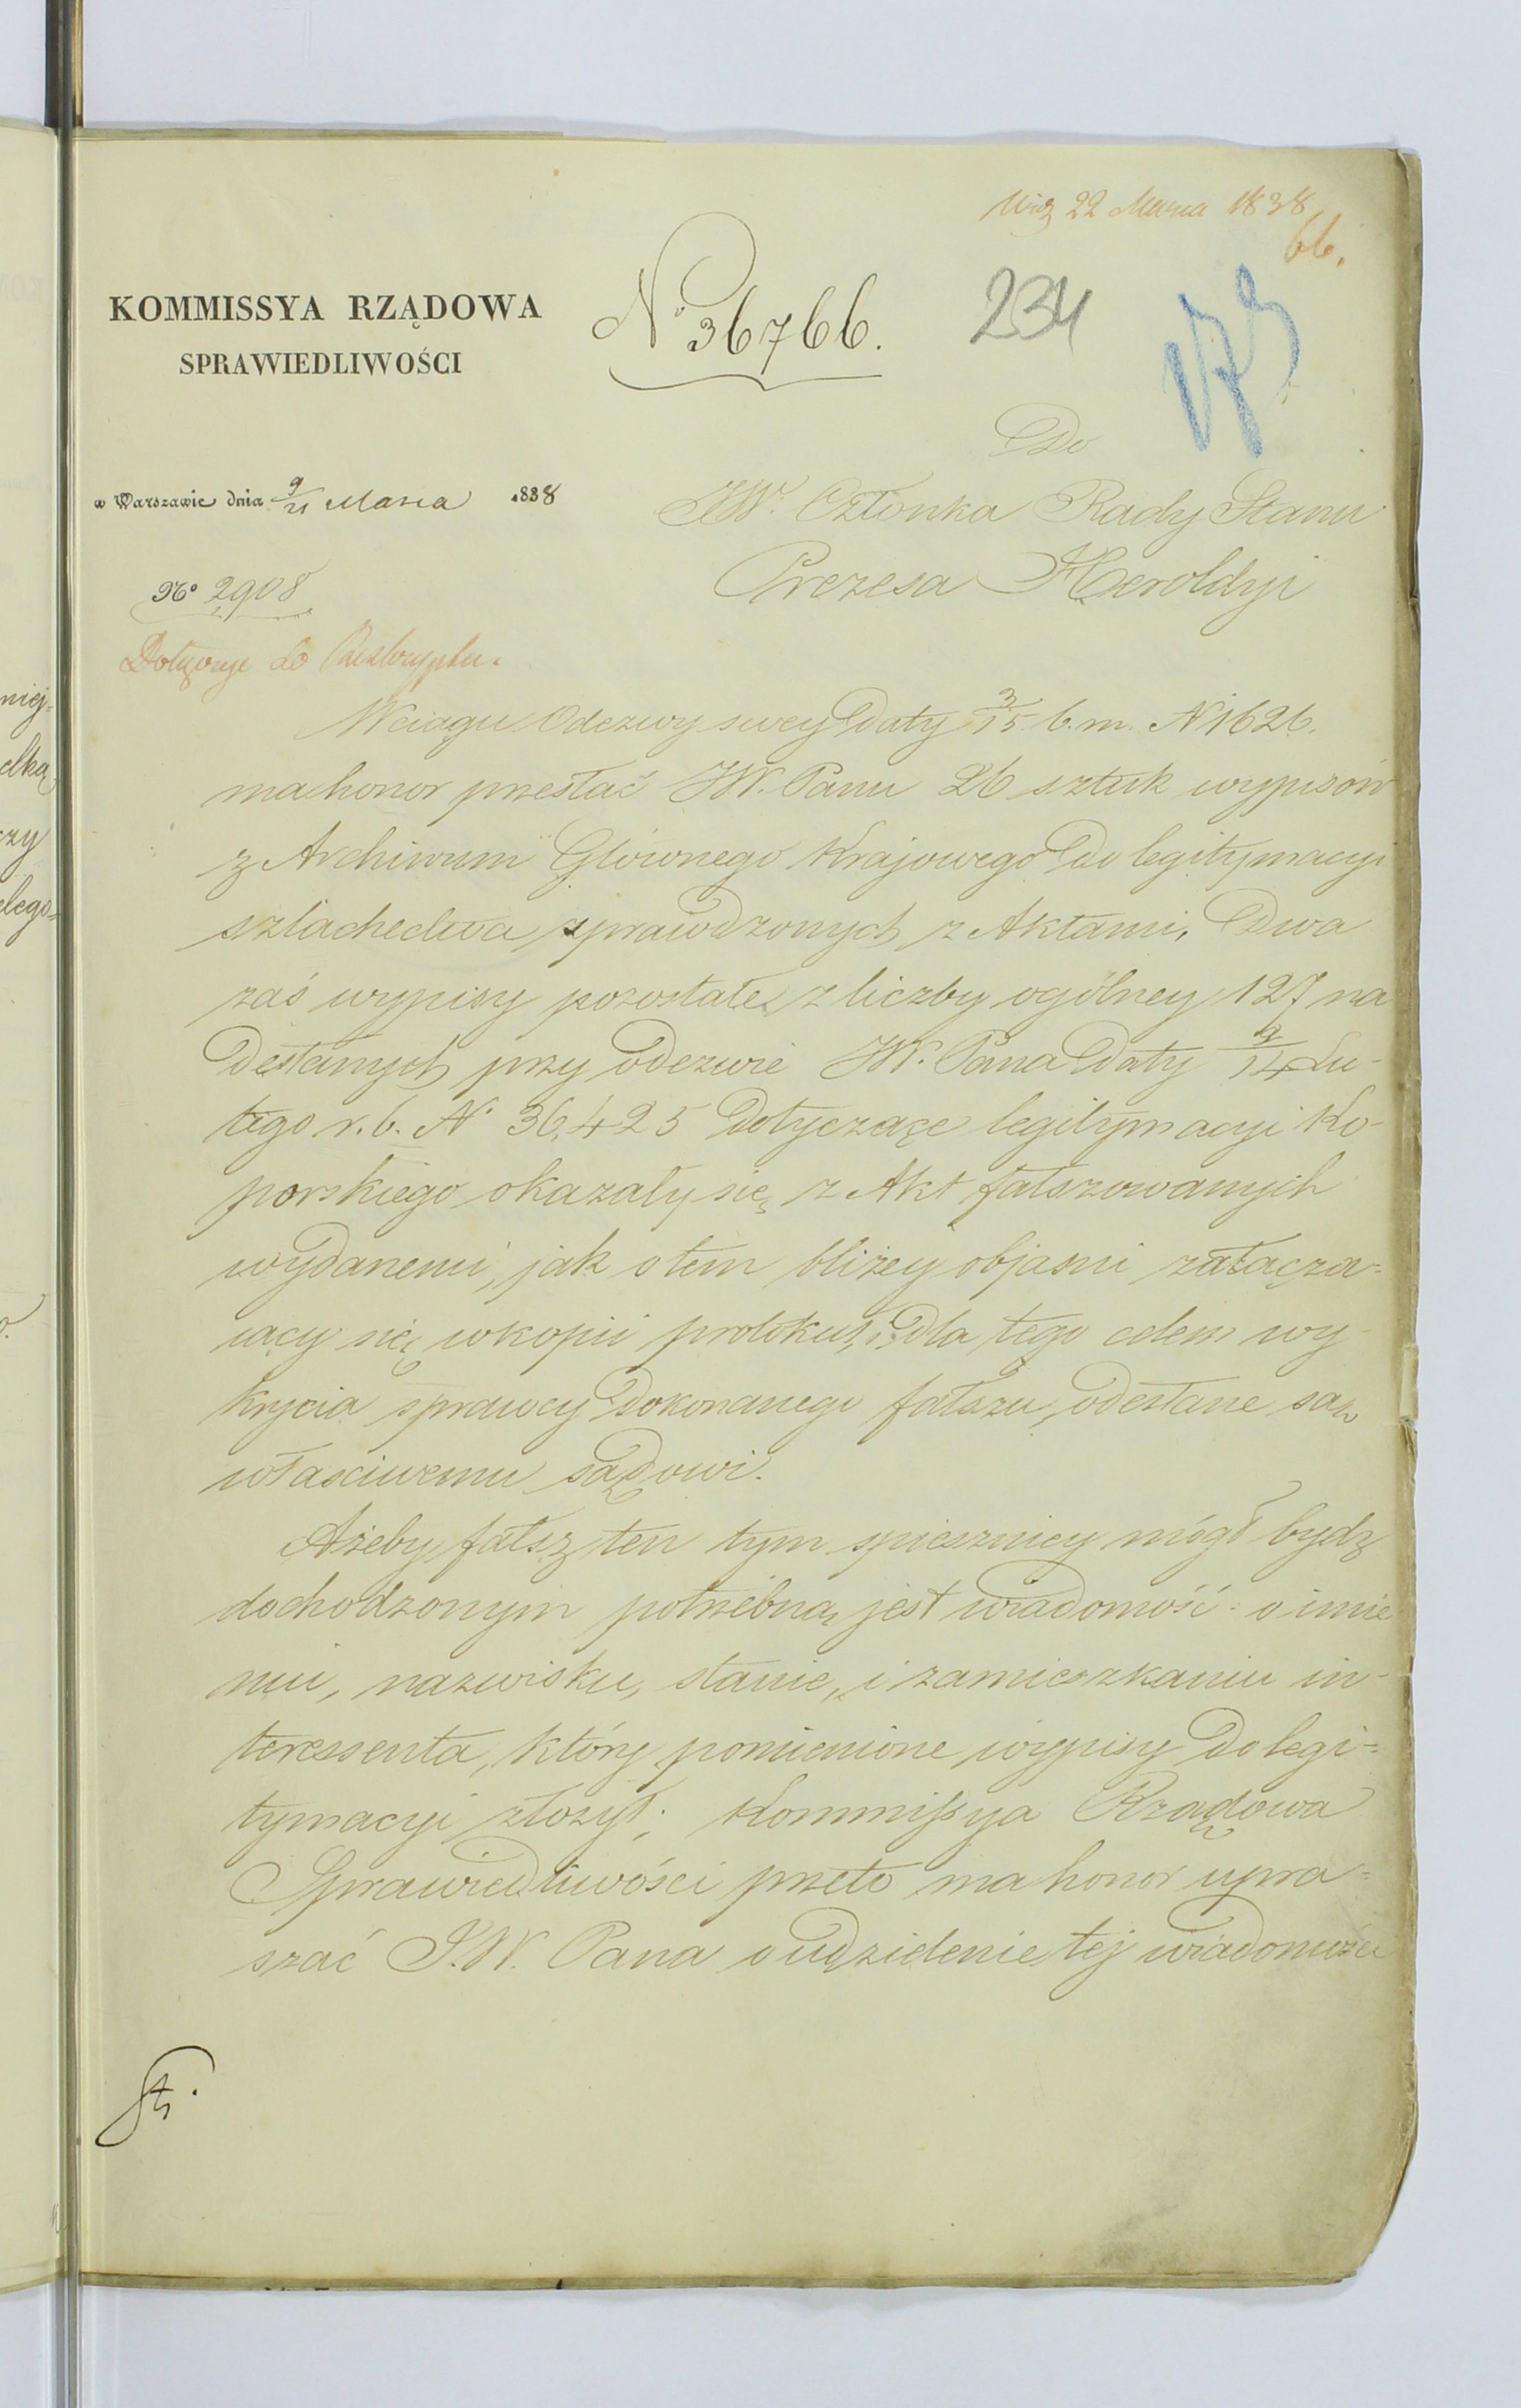 22 Marca 1838
66.
KOMMISSYA RZĄDOWA
SPRAWIEDLIWOŚCI
N° 36766.
234
173
w Warszawie dnia 9/21 Marca 1838
Do
JW. Członka Rady Stanu
Prezesa Heroldyi
No 2908
Dołączyć do
W ciągu Odezwy swey daty 3/15 b. m. N 1626.
ma honor przesłać JW. Panu 26 sztuk wypisów
z Archiwum Głównego Krajowego do legitymacyi
szlachectwa sprawdzonych z Aktami, Dwa
zaś wypisy pozostałe z liczby ogólney 127 na
desłanych przy odezwie JW. Pana daty 2/14 Lu-
tego r. b. N° 36,425 dotyczące legitymacyi Ko-
porskiego okazały się z Akt fałszowanych
wydanemi, jak o tem bliżey objasni załącza-
iący się w kopii protokuł, i dla tego celem wy-
krycia sprawcy dokonanego fałszu, odesłane są
własciwemu sądowi.
Ażeby fałsz ten tym spieszniey mógł bydź
dochodzonym potrzebną jest wiadomość o imie
niu, nazwisku, stanie, i zamieszkaniu in-
teressenta, który pomienione wypisy do legi-
tymacyi złożył; Kommissya Rządowa
Sprawiedliwości przeto ma honor upra-
szać J.W. Pana o udzielenie tej wiadomości
niej-
elką
czy
elego-